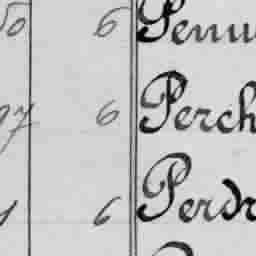 50 6 Penn
97 6 Perch
1 6 Perdr